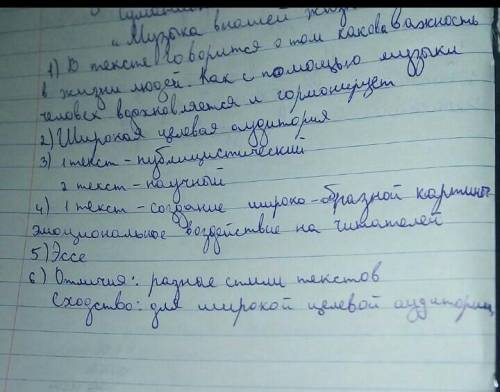 "Музыка в нашей жизн
1) В тексте говорится о том какова важность
в жизни людей. Как с помощью музыки
человек вдохновляется и гормонирует
2) Широкая целевая аудитория
3) 1 текст - публицистический
2 текст - научной
4) 1 текст - создание широко-образной картины
эмоциональное воздействие на читателей
5) Эссе
6) Отличия: разные стили текстов
Сходство: для широкой целевой аудитории